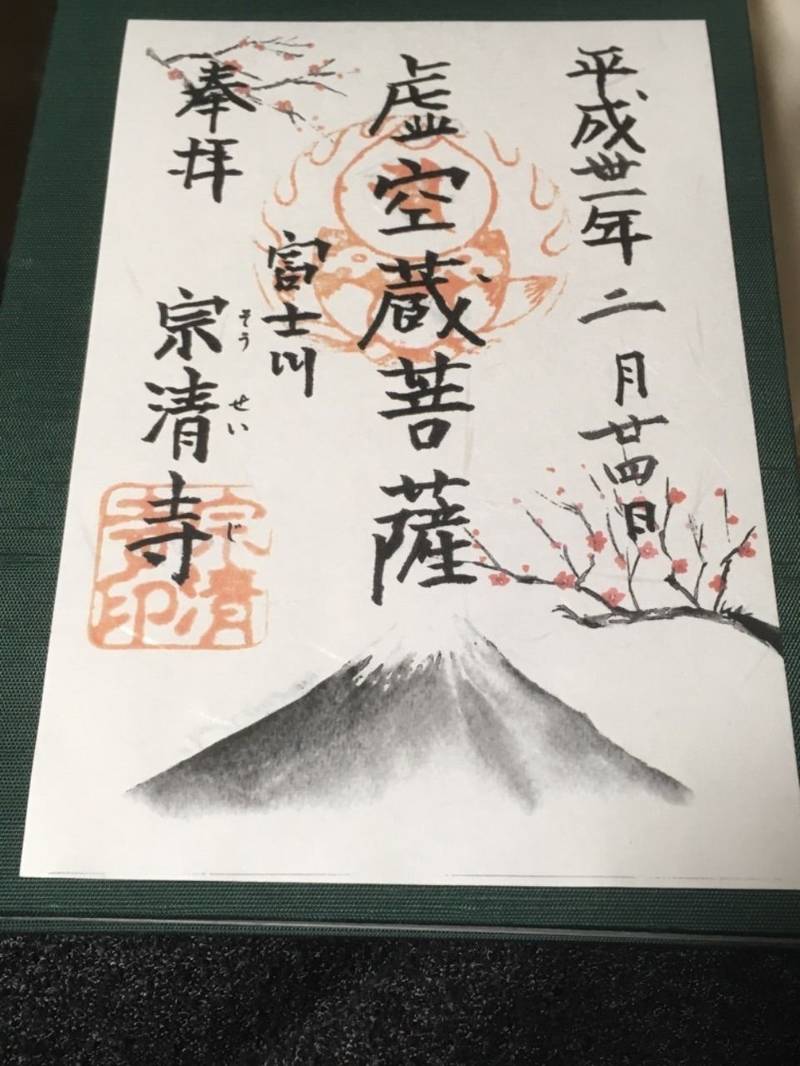 平成丗一年二月廿四日
虚空蔵菩薩
富士川
奉拝
宗清寺
そうせいじ
宗清
寺印